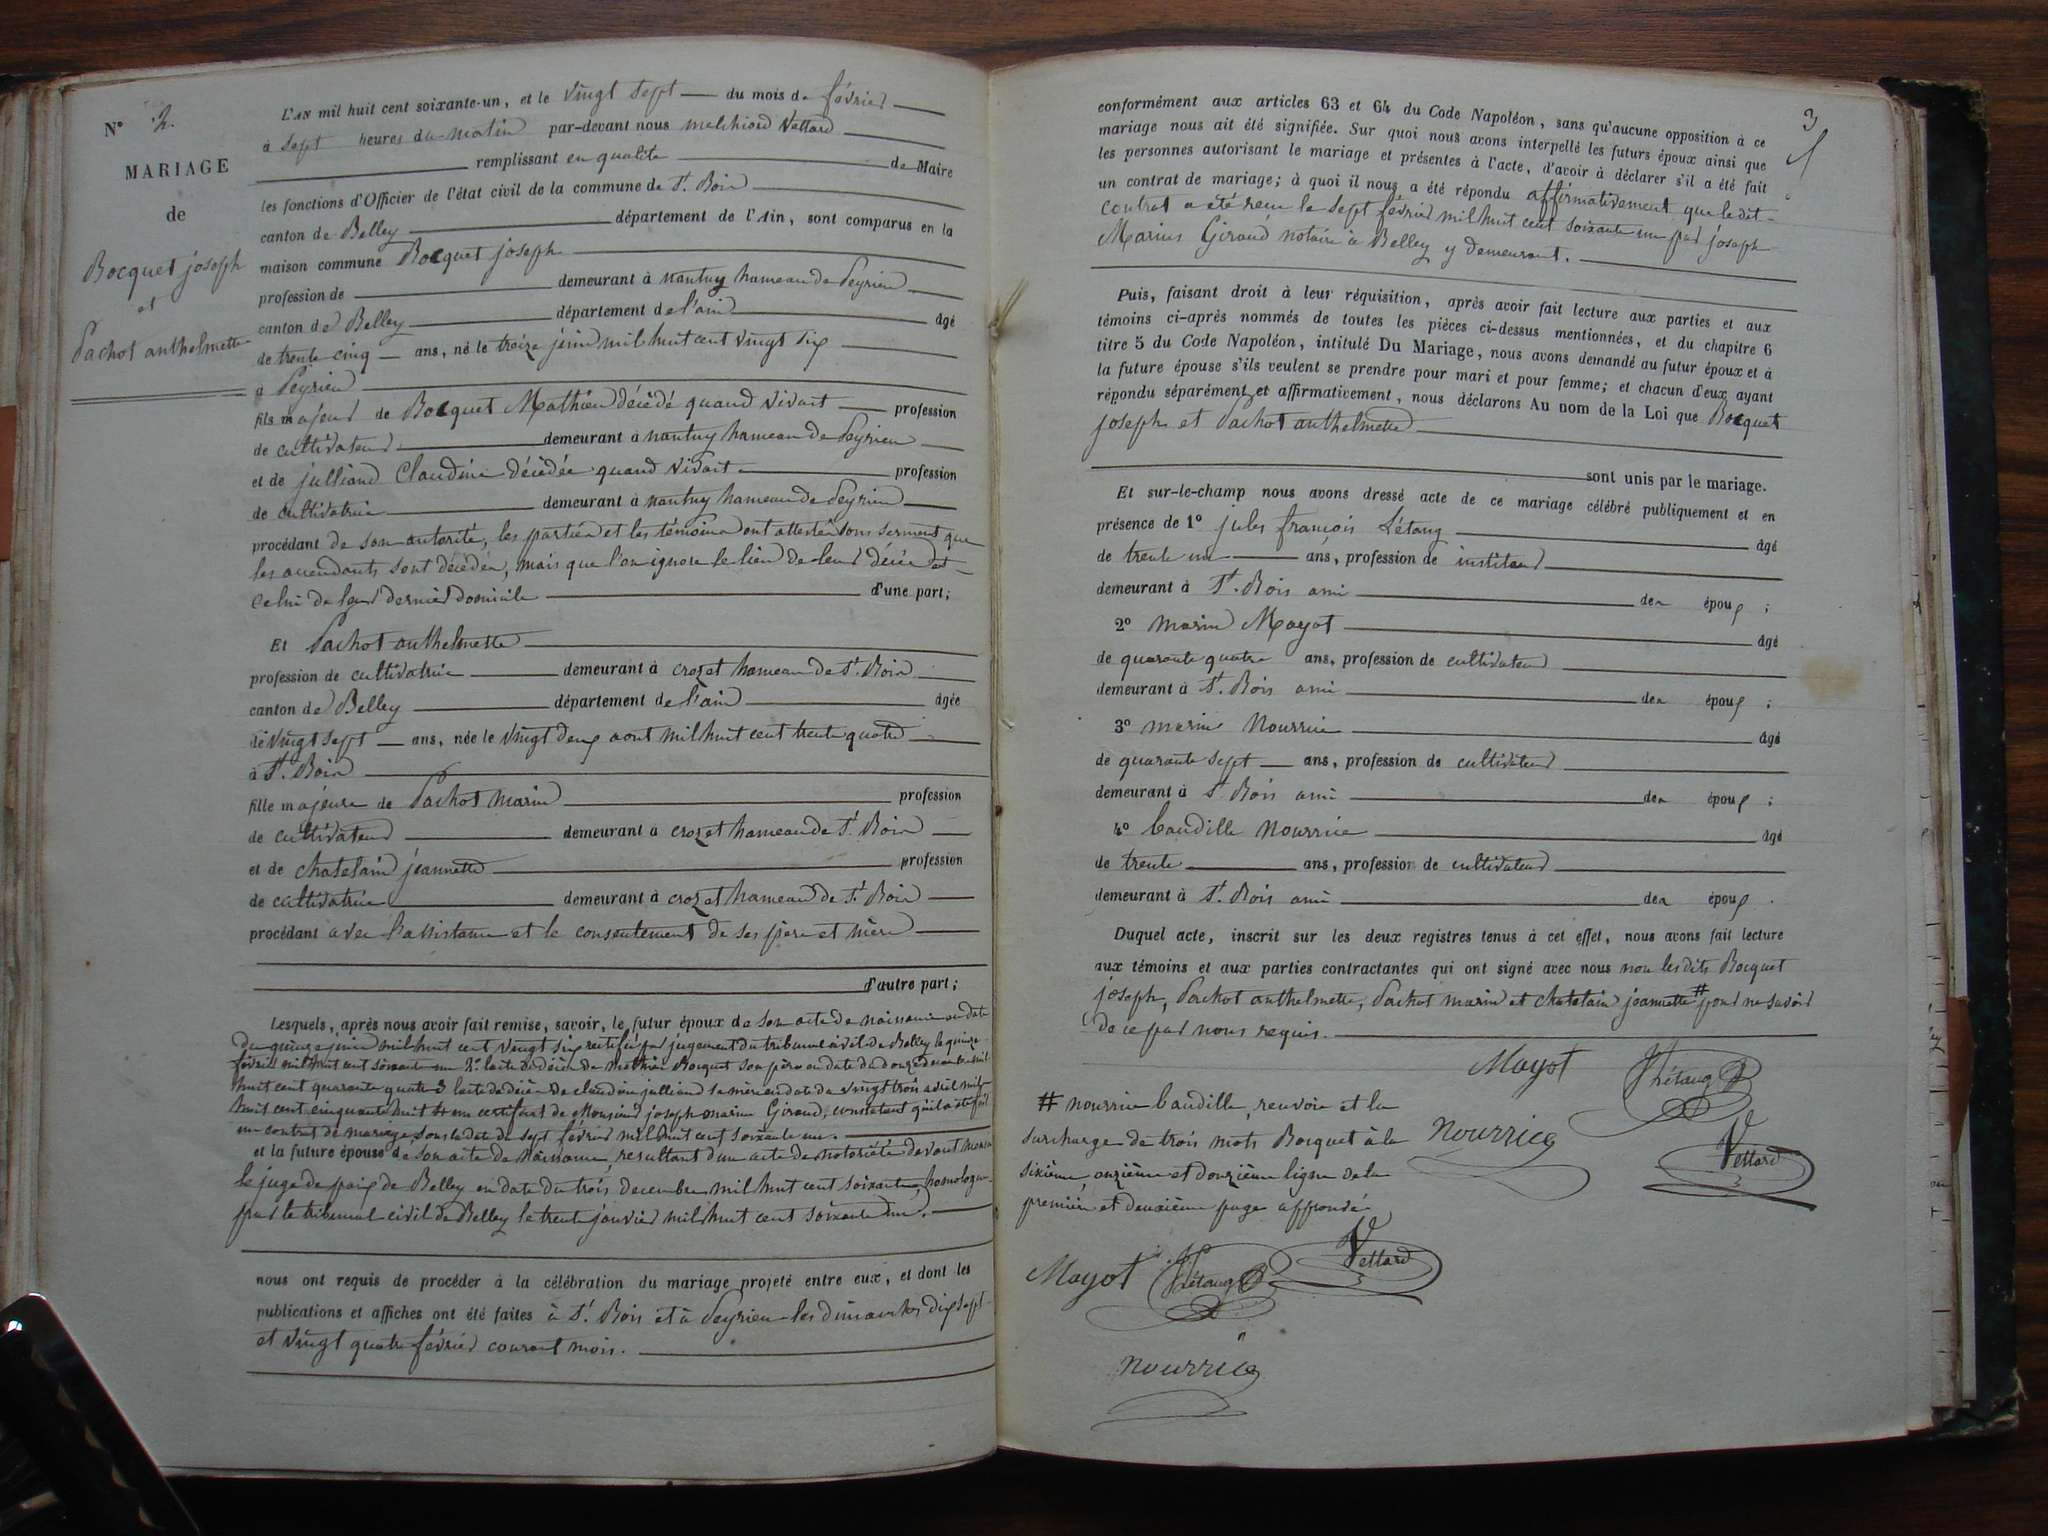 N° 2.
MARIAGE
de
Bocquet joseph
et
Pachot anthelmette
L'AN mil huit cent soixante-un, et le vingt sept du mois de février
à sept heures du matin par-devant nous melchiord Vettard
remplissant en qualité de Maire
les fonctions d'Officier de l'état civil de la commune de St. Bois
canton de Belley département de l'Ain, sont comparus en la
maison commune Bocquet joseph
profession de demeurant à nantuy hameau de Peyrieu
canton de Belley département de l'ain âgé
de trente cinq ans, né le treize juin mil huit cent vingt six
à Peyrieu
fils majeur de Bocquet Mathieu décédé quand vivait profession
de cultivateur demeurant à nantuy hameau de Peyrieu
et de julliand Claudine décédée quand vivait profession
de cultivatrice demeurant à nantuy hameau de Peyrieu
procédant de son autorité, les parties et les témoins ont attesté sous serment que
les ascendants sont décédés, mais que l'on ignore le lieu de leur décès et
celui de leur dernier domicile d'une part;
Et Pachot anthelmette
profession de cultivatrice demeurant à crozet hameau de St. Bois
canton de Belley département de l'ain âgée
de vingt sept ans, née le vingt deux aout mil huit cent trente quatre
à St. Bois
fille majeure de Pachot marin profession
de cultivateur demeurant à crozet hameau de St. Bois
et de chatelain jeannette profession
de cultivatrice demeurant à crozet hameau de St. Bois
procédant avec l'assistance et le consentement de ses père et mère
d'autre part;
Lesquels, après nous avoir fait remise, savoir, le futur époux de son acte de naissance en date
du quinze juin mil huit cent vingt six rectifié par jugement du tribunal civil de Belley le quinze
février mil huit cent soixante un 2° l'acte de décès de mathieu Bocquet son père en date du douze décembre mil
huit cent quarante quatre 3 l'acte de décès de claudine julliand sa mère en date du vingt trois avril mil
huit cent cinquante huit 4 un certificat de Monsieur joseph marius Giraud, constatant qu'il a été fait
un contrat de mariage sous la date du sept février mil huit cent soixante un.
et la future épouse de son acte de naissance, résultant d'un acte de notoriété devant
le juge de paix de Belley en date du trois decembre mil huit cent soixante, homologué
par le tribunal civil de Belley le trente janvier mil huit cent soixante un.
nous ont requis de procéder à la célébration du mariage projeté entre eux, et dont les
publications et affiches ont été faites à St. Bois et à Peyrieu les dimanches dix sept
et vingt quatre février courant mois.
3
conformément aux articles 63 et 64 du Code Napoléon, sans qu'aucune opposition à ce
mariage nous ait été signifiée. Sur quoi nous avons interpellé les futurs époux ainsi que
les personnes autorisant le mariage et présentes à l'acte, d'avoir à déclarer s'il a été fait
un contrat de mariage; à quoi il nous a été répondu affirmativement que le dit
contrat a été reçu le sept février mil huit cent soixante un par joseph
Marius Giraud notaire à Belley y demeurant.
Puis, faisant droit à leur réquisition, après avoir fait lecture aux parties et aux
témoins ci-après nommés de toutes les pièces ci-dessus mentionnées, et du chapitre 6
titre 5 du Code Napoléon, intitulé Du Mariage, nous avons demandé au futur époux et à
la future épouse s'ils veulent se prendre pour mari et pour femme; et chacun d'eux ayant
répondu séparément et affirmativement, nous déclarons Au nom de la Loi que Bocquet
joseph et Pachot anthelmette
sont unis par le mariage.
Et sur-le-champ nous avons dressé acte de ce mariage célébré publiquement et en
présence de 1° jules françois Létang âgé
de trente un ans, profession de instituteur
demeurant à St. Bois ami des époux ;
2° marin Mayot âgé
de quarante quatre ans, profession de cultivateur
demeurant à St. Bois ami des époux ;
3° marin Nourrice âgé
de quarante sept ans, profession de cultivateur
demeurant à St Bois ami des époux ;
4° baudille nourrice âgé
de trente ans, profession de cultivateur
demeurant à St. Bois ami des époux .
Duquel acte, inscrit sur les deux registres tenus à cet effet, nous avons fait lecture
aux témoins et aux parties contractantes qui ont signé avec nous non les dits Bocquet
joseph, Pachot anthelmette, Pachot marin et chatelain jeannette # pour ne savoir
de ce par nous requis.
Mayot Létang
# nourrice baudille, renvoie et la
surcharge de trois mots Bocquet à la
sixième, onzième et douzième ligne de la
première et deuxième page approuvé
Nourrice
Vettard
Mayot Létang Vettard
nourrice